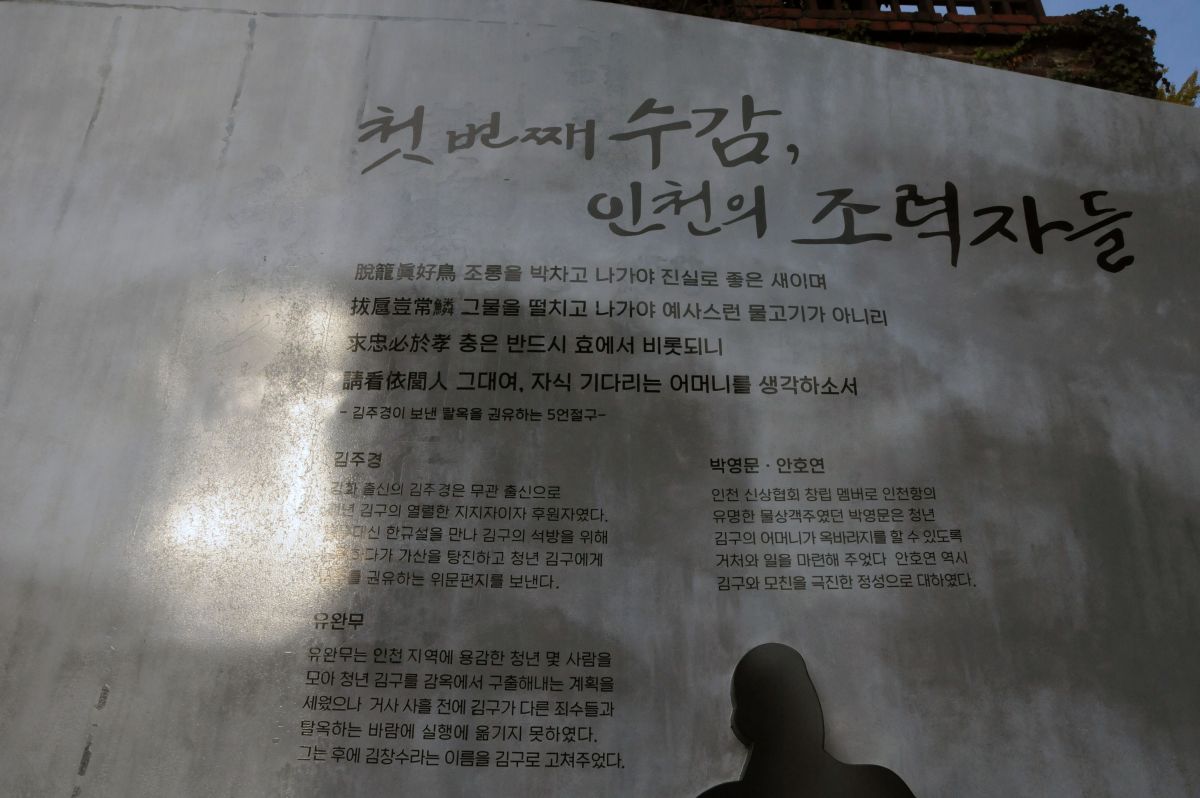 첫 번째 수감,
인천의 조력자들
脫籠眞好鳥 조롱을 박차고 나가야 진실로 좋은 새이며
拔扈豈常鱗 그물을 떨치고 나가야 예사스런 물고기가 아니리
求忠必於孝 충은 반드시 효에서 비롯되니
請看依閭人 그대여, 자식 기다리는 어머니를 생각하소서
- 김주경이 보낸 탈옥을 권유하는 5언절구-
김주경
강화 출신의 김주경은 무관 출신으로
청년 김구의 열렬한 지지자이자 후원자였다.
한규설을 만나 김구의 석방을 위해
가산을 탕진하고 청년 김구에게
권유하는 위문편지를 보낸다.
박영문 · 안호연
인천 신상협회 창립 멤버로 인천항의
유명한 물상객주였던 박영문은 청년
김구의 어머니가 옥바라지를 할 수 있도록
거처와 일을 마련해 주었다 안호연 역시
김구와 모친을 극진한 정성으로 대하였다.
유완무
유완무는 인천 지역에 용감한 청년 몇 사람을
모아 청년 김구를 감옥에서 구출해내는 계획을
세웠으나 거사 사흘 전에 김구가 다른 죄수들과
탈옥하는 바람에 실행에 옮기지 못하였다.
그는 후에 김창수라는 이름을 김구로 고쳐주었다.